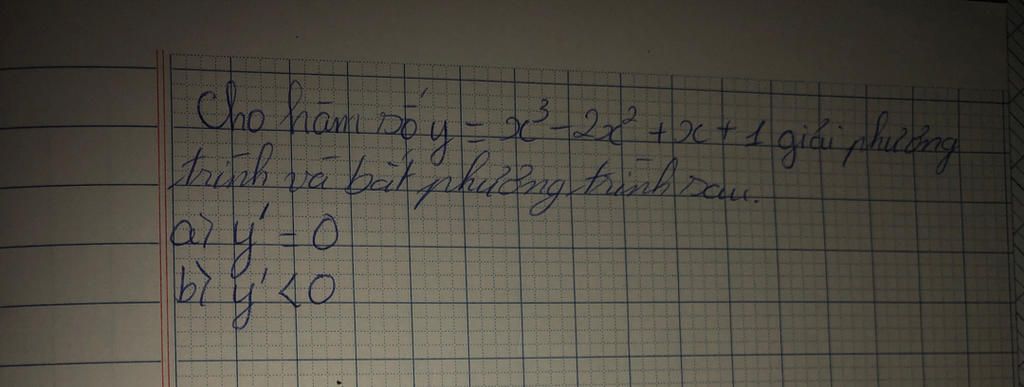 Cho hàm số y = x³ - 2x² + x + 1 giải phương
trình và bất phương trình sau.
a) y' = 0
b) y' < 0